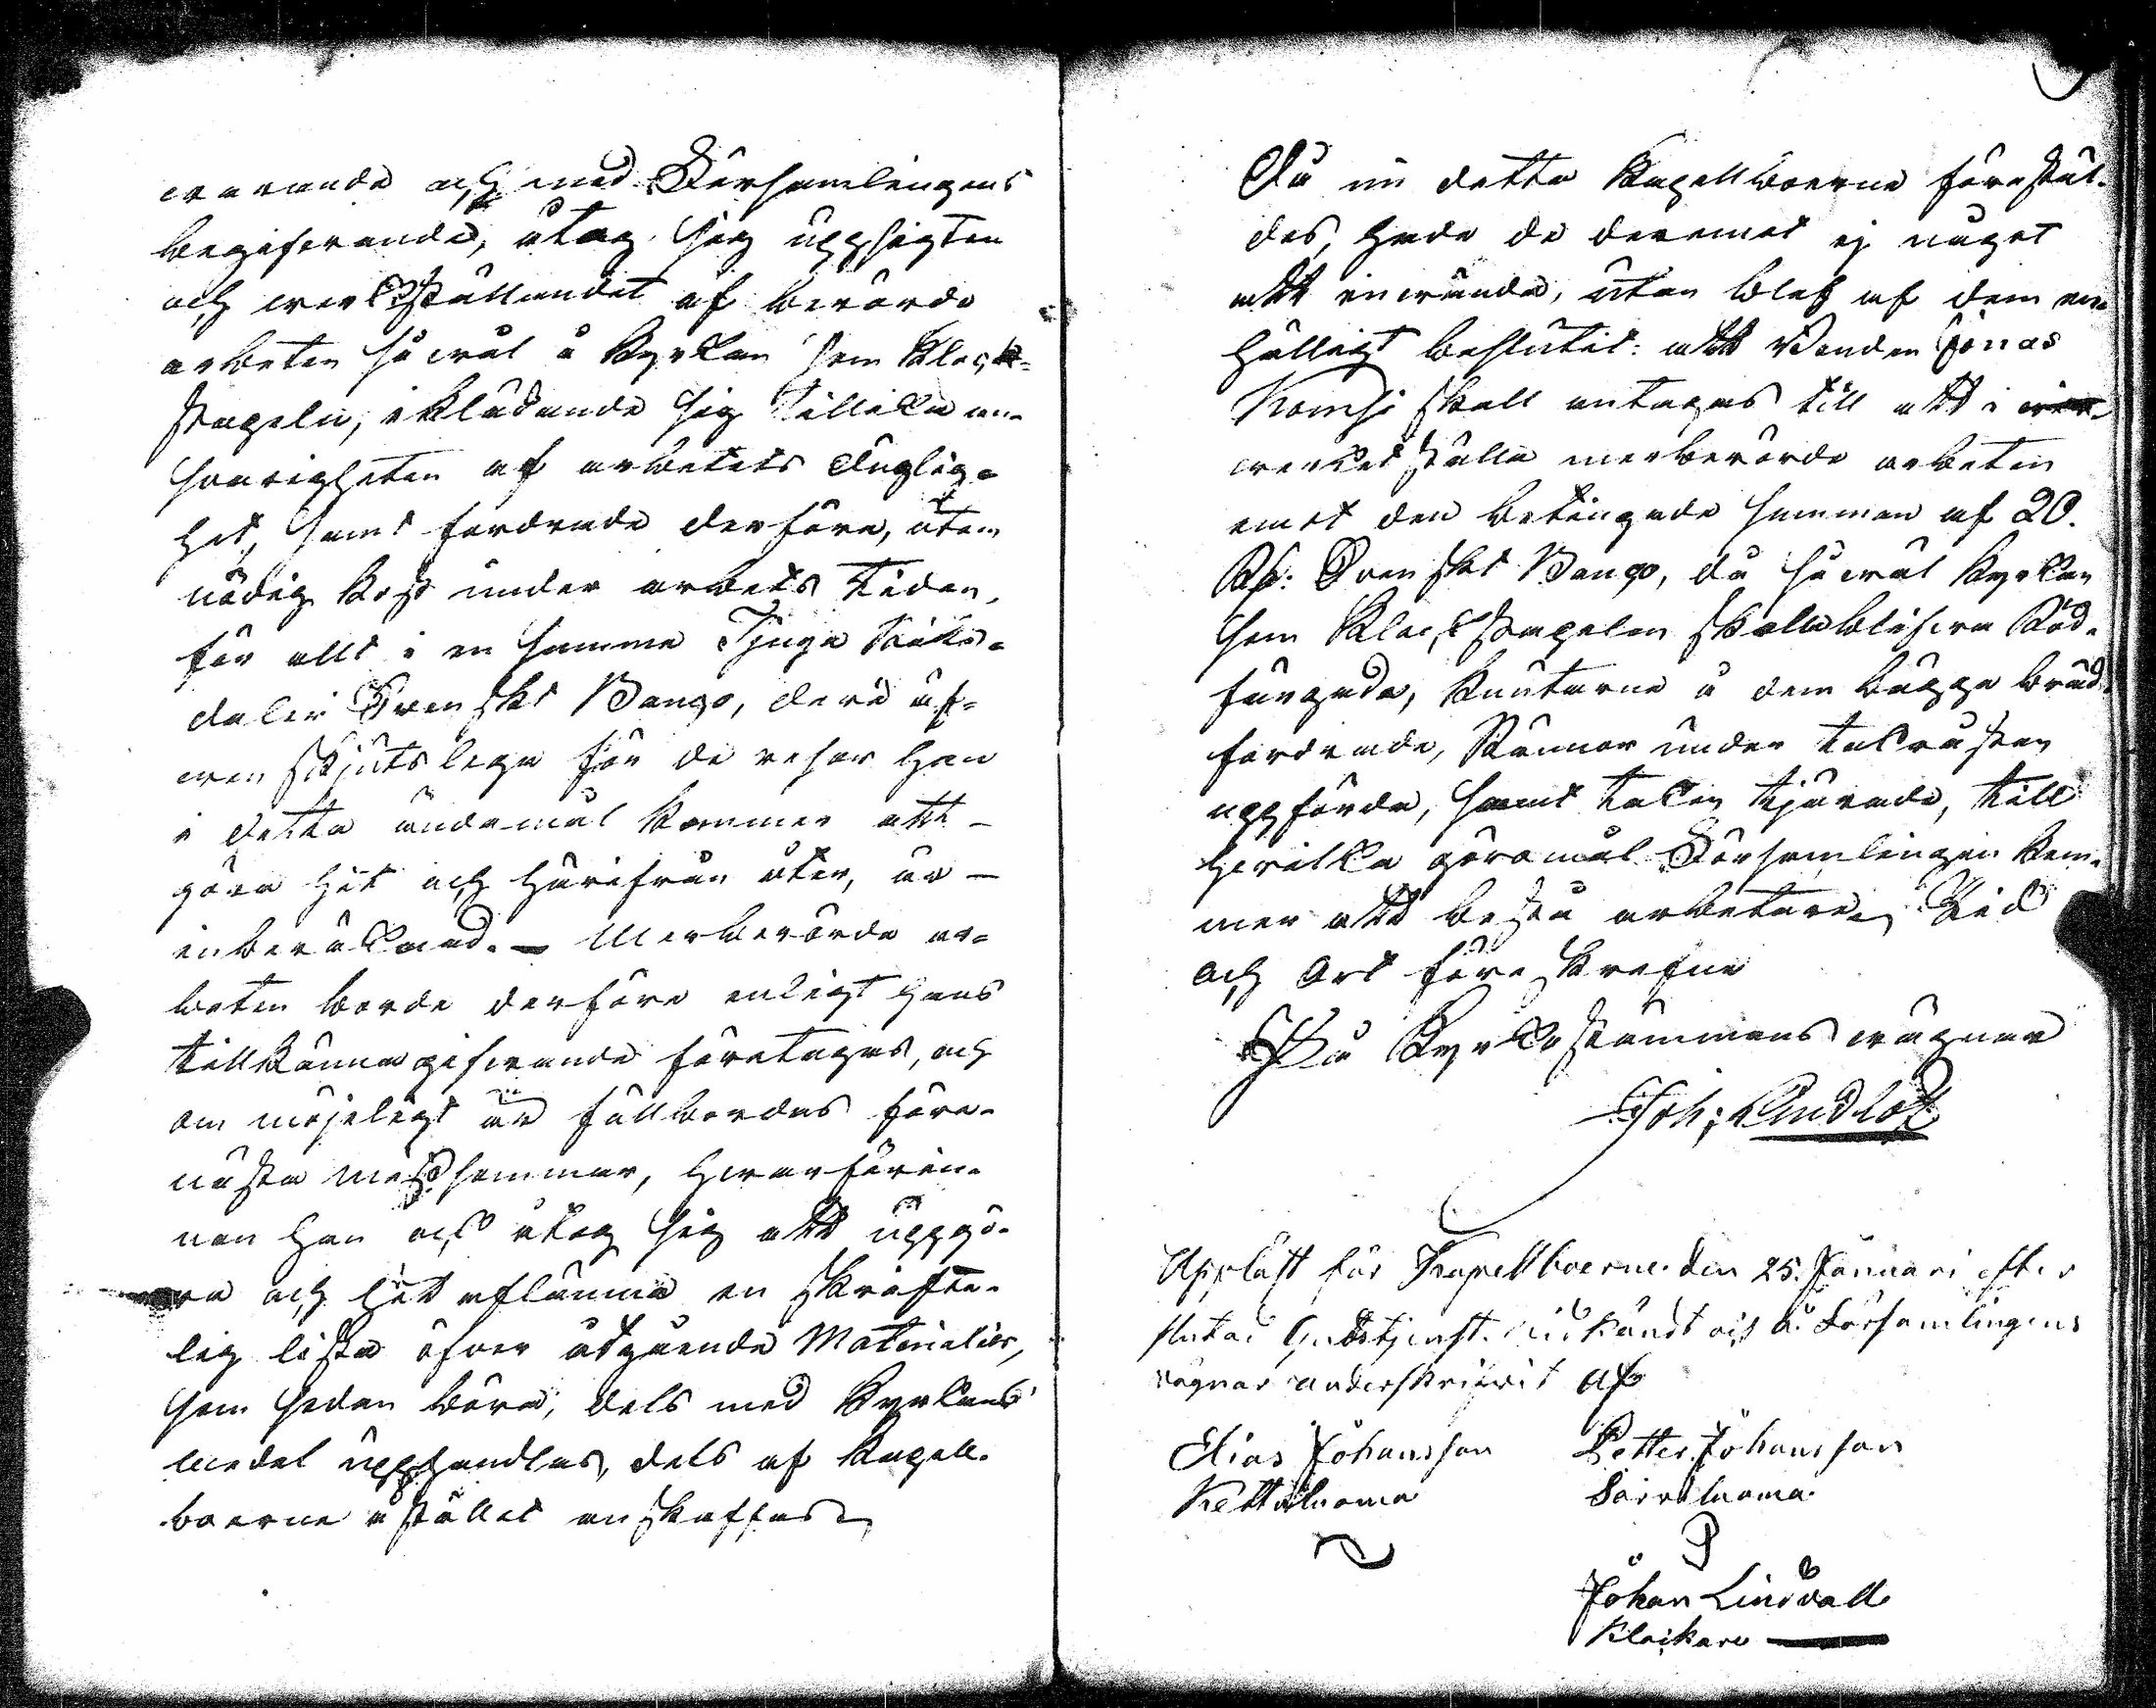 warande och med Församlingens
begifwande, åtog sig uppsigten
och werkställandet af berörde
arbeten så wäl å Kyrkan som Klock-
stapeln, iklädande sig tillika an-
swarigheten af arbetets duglig-
het, samt fordrade derföre, utom
nödig kost under arbets tiden,
för allt i en summa Tjugo Riks-
daler Svenskt Banco, deri äf-
wen skjutslega för de resor han
i detta ändamål kommer att
göra hit och härifrån åter, är
inberäknad. Merberörde ar-
beten borde derföre enligt hans
tillkänna gifwande företagas, och
om möjeligt är fullbordas före
nästa midsommar, hwarförin-
nan han ock åtog sig att uppgö-
ra och hit aflämna en skrifte-
lig lista öfver åtgående Materialier,
som sedan böra, dels med Kyrkans
medel upphandlas, dels af Kapell-
boerne i stället anskaffas
Då nu detta Kapellboerne förestäl-
des, hade de deremot ej något
att inwända, utan blef af dem en-
hälligt beslutit: att Bonden Jonas
Komsi skall antagas till att i
werket ställa merberörde arbeten
emot den betingade summan af 20.
Rd: Svenskt Banco, då så wäl Kyrkan
som Klockstapelen skola blifwa Röd-
färgade, knutarne å dem bägge bräd-
fordrade, Rännor under takrösten
uppförda, samt taken tjärade, till
hwilka göromål Församlingen kom-
mer att bestå arbetare. Tid
och Ort före skrefne
På Kyrkostämmans wägnar
Joh: Lindlöf
Uppläst för Kapellboerne den 25. Januari efter
slutad Gudstjenst. widkändt och å Församlingens
wägnar underskrifwit af
Elias Johansson Petter Johansson
Kettäluoma
Johan Lindvall
Klockare